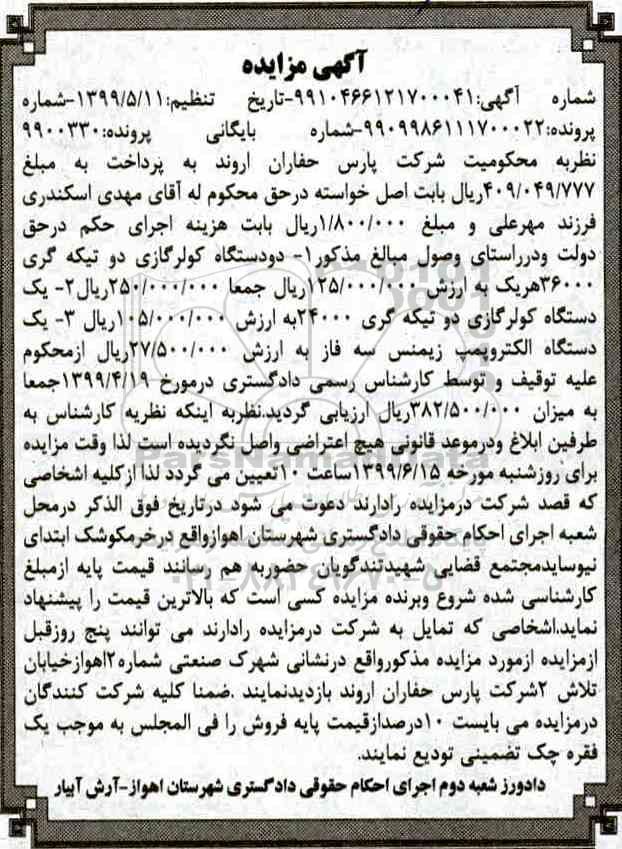 آگهی مزایده
شماره آگهی:۹۹۱۰۴۶۶۱۲۱۷۰۰۰۴۱-تاریخ تنظیم:۱۳۹۹/۵/۱۱-شماره
پرونده:۹۹۰۹۹۸۶۱۱۱۷۰۰۰۲۲-شماره بایگانی پرونده:۹۹۰۰۳۳۰
نظربه محکومیت شرکت پارس حفاران اروند به پرداخت به مبلغ
۴۰۹/۰۴۹/۷۷۷ریال بابت اصل خواسته درحق محکوم له آقای مهدی اسکندری
فرزند مهرعلی و مبلغ ۱/۸۰۰/۰۰۰ریال بابت هزینه اجرای حکم درحق
دولت ودرراستای وصول مبالغ مذکور۱- دودستگاه کولرگازی دو تیکه گری
۳۶۰۰۰هریک به ارزش ۱۲۵/۰۰۰/۰۰۰ریال جمعا ۲۵۰/۰۰۰/۰۰۰ریال۲- یک
دستگاه کولرگازی دو تیکه گری ۲۴۰۰۰به ارزش ۱۰۵/۰۰۰/۰۰۰ریال ۳- یک
دستگاه الکتروپمپ زیمنس سه فاز به ارزش ۲۷/۵۰۰/۰۰۰ریال ازمحکوم
علیه توقیف و توسط کارشناس رسمی دادگستری درمورخ ۱۳۹۹/۴/۱۹جمعا
به میزان ۳۸۲/۵۰۰/۰۰۰ریال ارزیابی گردید.نظربه اینکه نظریه کارشناس به
طرفین ابلاغ ودرموعد قانونی هیچ اعتراضی واصل نگردیده است لذا وقت مزایده
برای روزشنبه مورخه ۱۳۹۹/۶/۱۵ساعت ۱۰تعیین می گردد لذا ازکلیه اشخاصی
که قصد شرکت درمزایده رادارند دعوت می شود درتاریخ فوق الذکر درمحل
شعبه اجرای احکام حقوقی دادگستری شهرستان اهوازواقع درخرمکوشک ابتدای
نیوسایدمجتمع قضایی شهیدتندگویان حضوربه هم رسانند قیمت پایه ازمبلغ
کارشناسی شده شروع وبرنده مزایده کسی است که بالاترین قیمت را پیشنهاد
نماید.اشخاصی که تمایل به شرکت درمزایده رادارند می توانند پنج روزقبل
ازمزایده ازمورد مزایده مذکورواقع درنشانی شهرک صنعتی شماره۲اهوازخیابان
تلاش ۲شرکت پارس حفاران اروند بازدیدنمایند .ضمنا کلیه شرکت کنندگان
درمزایده می بایست ۱۰درصدازقیمت پایه فروش را فی المجلس به موجب یک
فقره چک تضمینی تودیع نمایند.
دادورز شعبه دوم اجرای احکام حقوقی دادگستری شهرستان اهواز-آرش آبیار
ParsNamadData
۰۲۱-۸۸۳۴۹۶۷۰-۵